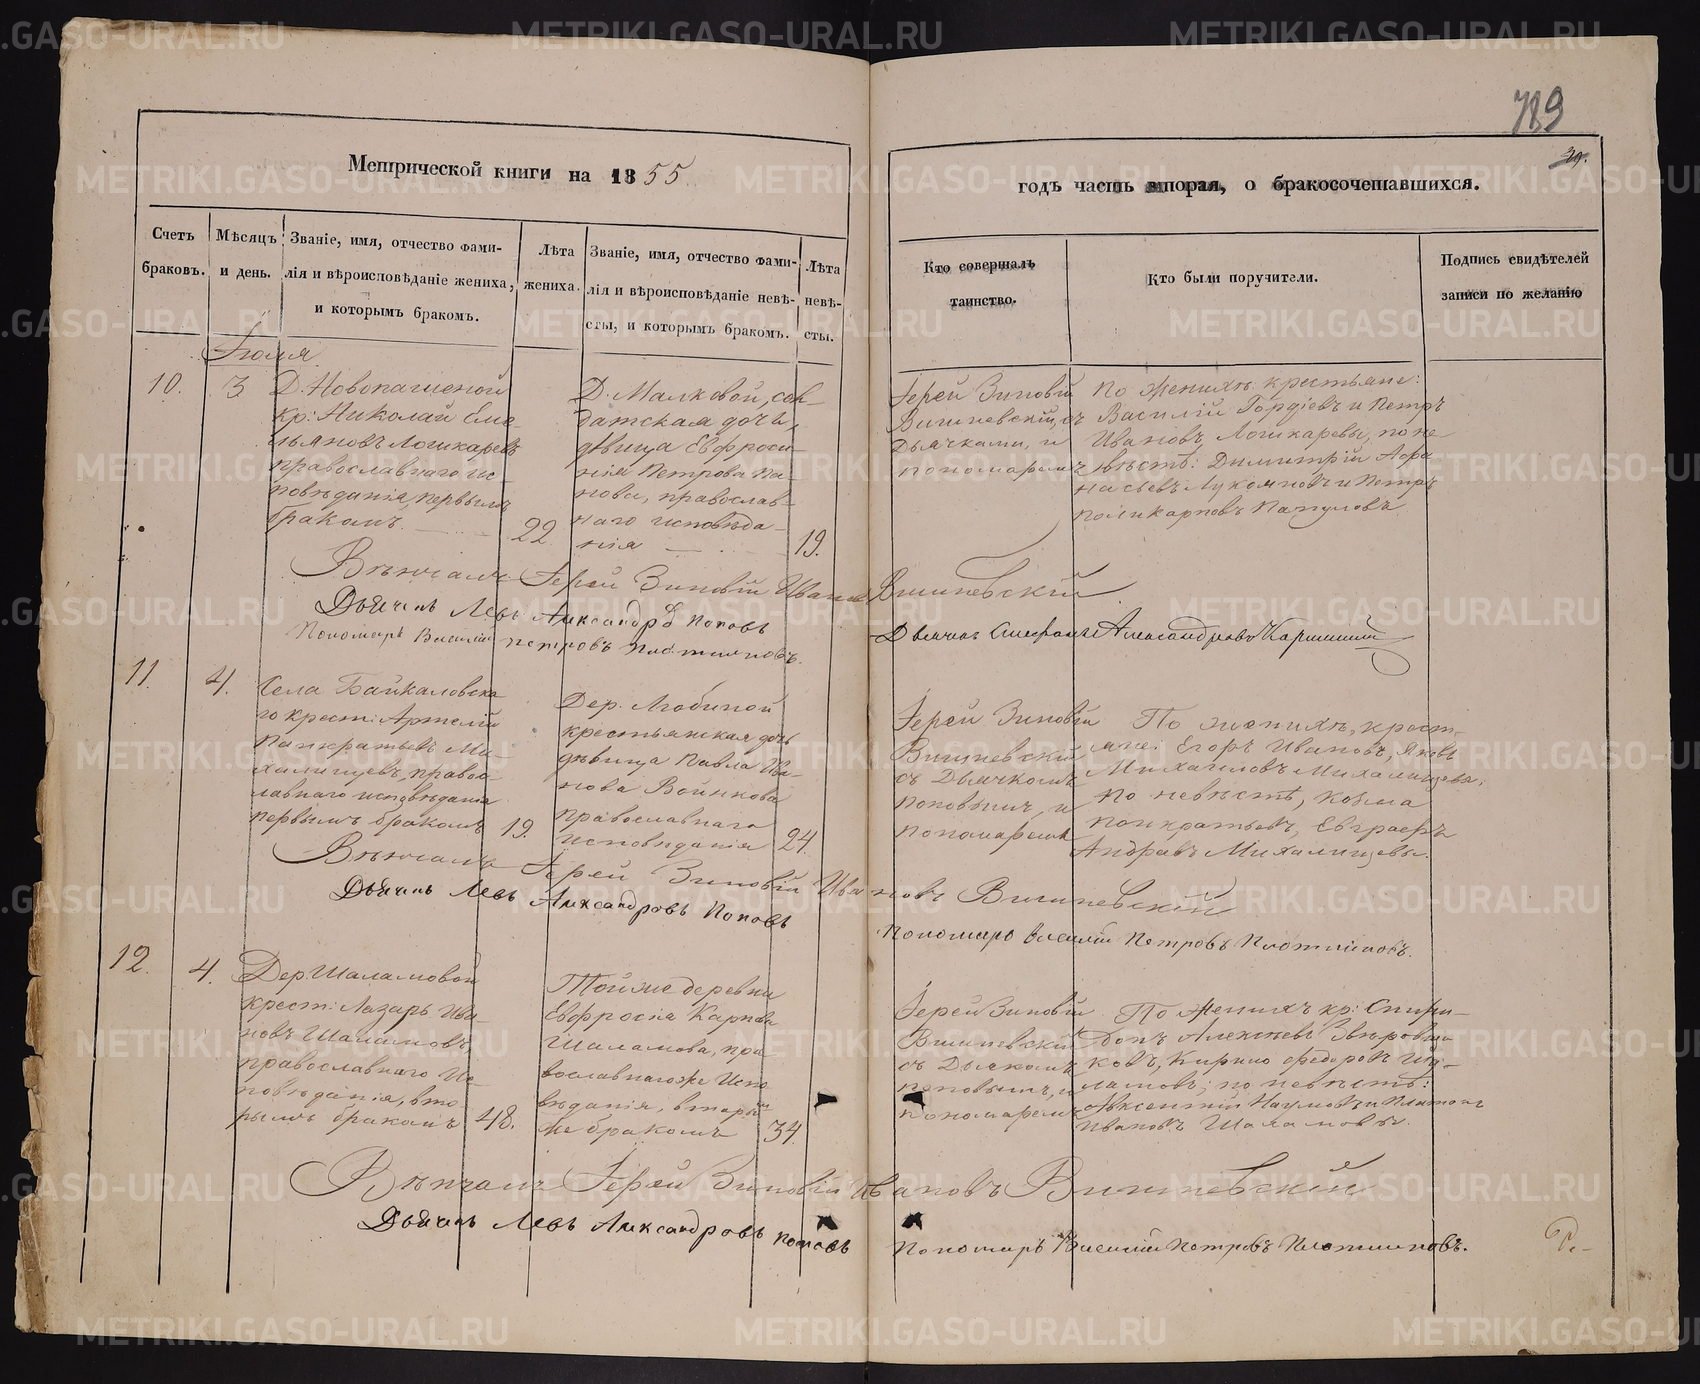 789
29.
Метрической книги на 1855
годъ часть вторая, о бракосочетавшихся.
Счетъ браковъ.
Мѣсяцъ и день.
Званіе, имя, отчество фами-
лія и вѣроисповѣданіе жениха,
и которымъ бракомъ.
Лѣта жениха.
Званіе, имя, отчество фами-
лія и вѣроисповѣданіе невѣ-
сты, и которымъ бракомъ.
Лѣта невѣ-
сты.
Кто совершалъ
таинство.
Кто были поручители.
Подпись свидѣтелей
записи по желанію
Іюля
10.
3
Д. Новопашеной
кр: Николай Еме-
льяновъ Лошкаревъ
православнаго ис-
повѣданія, первымъ
бракомъ
22
Д. Малковой, сол-
датская дочь,
дѣвица Евфроси-
нія Петрова Па-
нова, православ-
наго исповѣда-
нія
19.
Іерей Зиновій
Вишневскій, съ
Дьячками, и
пономаремъ
По женихѣ крестьяне:
Василій Гордіевъ и Петръ
Ивановъ Лошкаревы, по не-
вѣстѣ: Димитрій Афа-
насьевъ Лукояновъ и Петръ
Поликарповъ Папуловъ
Вѣнчалъ Іерей Зиновій Ивановъ Вишневскій
Дьячекъ Левъ Александровъ Поповъ
Дьячекъ Стефанъ Александровъ Каршинскій
Пономарь Василій Петровъ Плотниковъ.
11.
4.
Села Байкаловска-
го крест: Артемій
Панкратьевъ Ми-
халищевъ, правос-
лавнаго исповѣданія
первымъ бракомъ
19.
Дер. Любиной
крестьянская дочь
дѣвица Павла Ива-
нова Войнкова
православнаго
исповѣданія
24.
Іерей Зиновій
Вишневскій
съ Дьячкомъ
Поповымъ, и
пономаремъ
По женихѣ, крест-
яне: Егоръ Ивановъ, Яковъ
Михаиловъ Михалищевы,
по невѣстѣ, Козма
Панкратьевъ, Евграфъ
Андреевъ Михалищевы.
Вѣнчалъ Іерей Зиновій Ивановъ Вишневскій
Дьячекъ Левъ Александровъ Поповъ
Пономарь Василій Петровъ Плотниковъ.
12.
4.
Дер. Шаламовой
крест: Лазарь Ива-
новъ Шаламовъ,
православнаго Ис-
повѣданія, вто-
рымъ бракомъ
48.
Той же деревни
Евфросія Карпова
Шаламова, пра-
вославнаго же Испо-
вѣданія, вторым
же бракомъ
34
Іерей Зиновій
Вишневскій
съ Дьячкомъ
Поповымъ, и
пономаремъ
По Женихѣ кр: Спири-
донъ Алексѣевъ Звѣровщи-
ковъ, Кирило Федоровъ Ша-
ламовъ; по невѣстѣ:
Авксентій Наумовъ и Платонъ
Ивановъ Шаламовы.
Вѣнчалъ Іерей Зиновій Ивановъ Вишневскій
Дьячекъ Левъ Александровъ Поповъ
Пономарь Василій Петровъ Плотниковъ.
METRIKI.GASO-URAL.RU